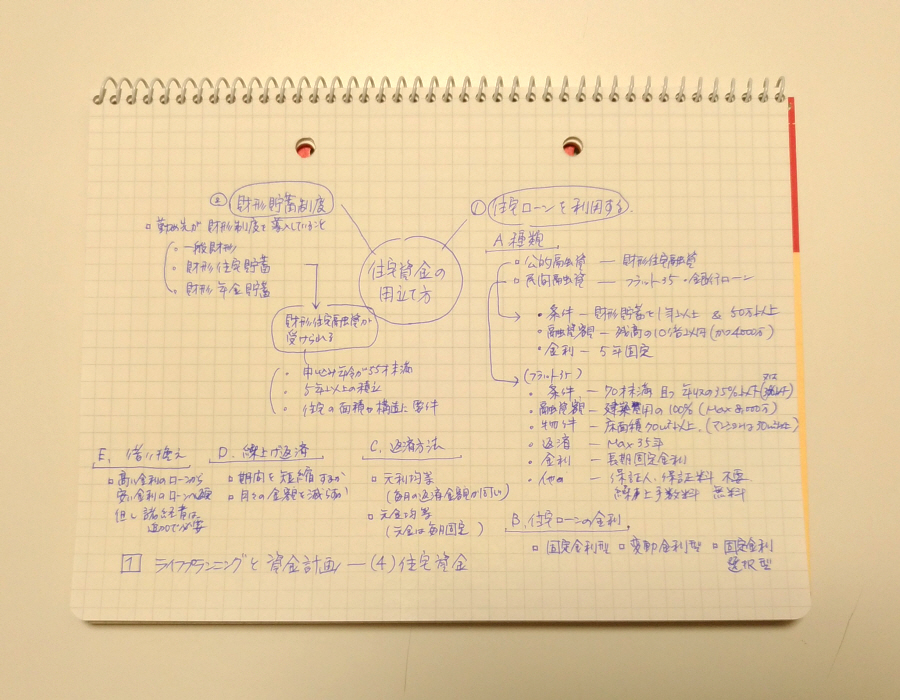 住宅資金の
用立て方
① 住宅ローンを利用する.
A. 種類
公的融資 — 財形住宅融資
民間融資 — フラット35・銀行ローン
・条件 — 財形貯蓄で1年以上 & 50万以上
・融資額 — 残高の10倍以内(max4000万)
・金利 — 5年固定
(フラット35)
・条件 — 70才未満 且つ 年収の35%以下
・融資額 — 建築費用の100% (Max 8,000万)
・物件 — 床面積70㎡以上.(マンションは30㎡以上)
・返済 — Max 35年
・金利 — 長期固定金利
・他 — 保証人・保証料 不要
繰上手数料 無料
B. 住宅ローンの金利
固定金利型 変動金利型 固定金利
選択型
② 財形貯蓄制度
勤め先が財形制度を導入していること
・一般財形
・財形住宅貯蓄
・財形年金貯蓄
財形住宅融資が
受けられる
・申込み年令が55才未満
・5年以上の積立
・住宅の面積や構造に要件
C. 返済方法
元利均等
(毎月の返済金額が同じ)
元金均等
(元金は毎月固定)
D. 繰上げ返済
期間を短縮するか
月々の金額を減らすか
E. 借り換え
高い金利のローンから
安い金利のローンへ
但し 諸経費は
必要
1 ライフプランニングと資金計画 — (4) 住宅資金